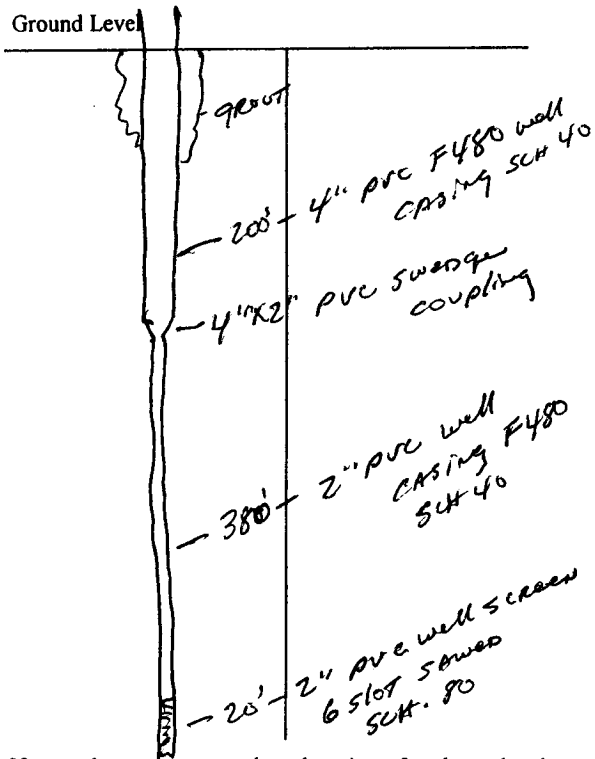 Ground Level
GROUT
200' - 4" PVC F480 well
CASING SCH 40
4"X2" PVC swedge
coupling
380' - 2" PVC well
CASING F480
SCH 40
20' - 2" PVC well SCREEN
6 SLOT SAWED
SCH. 80